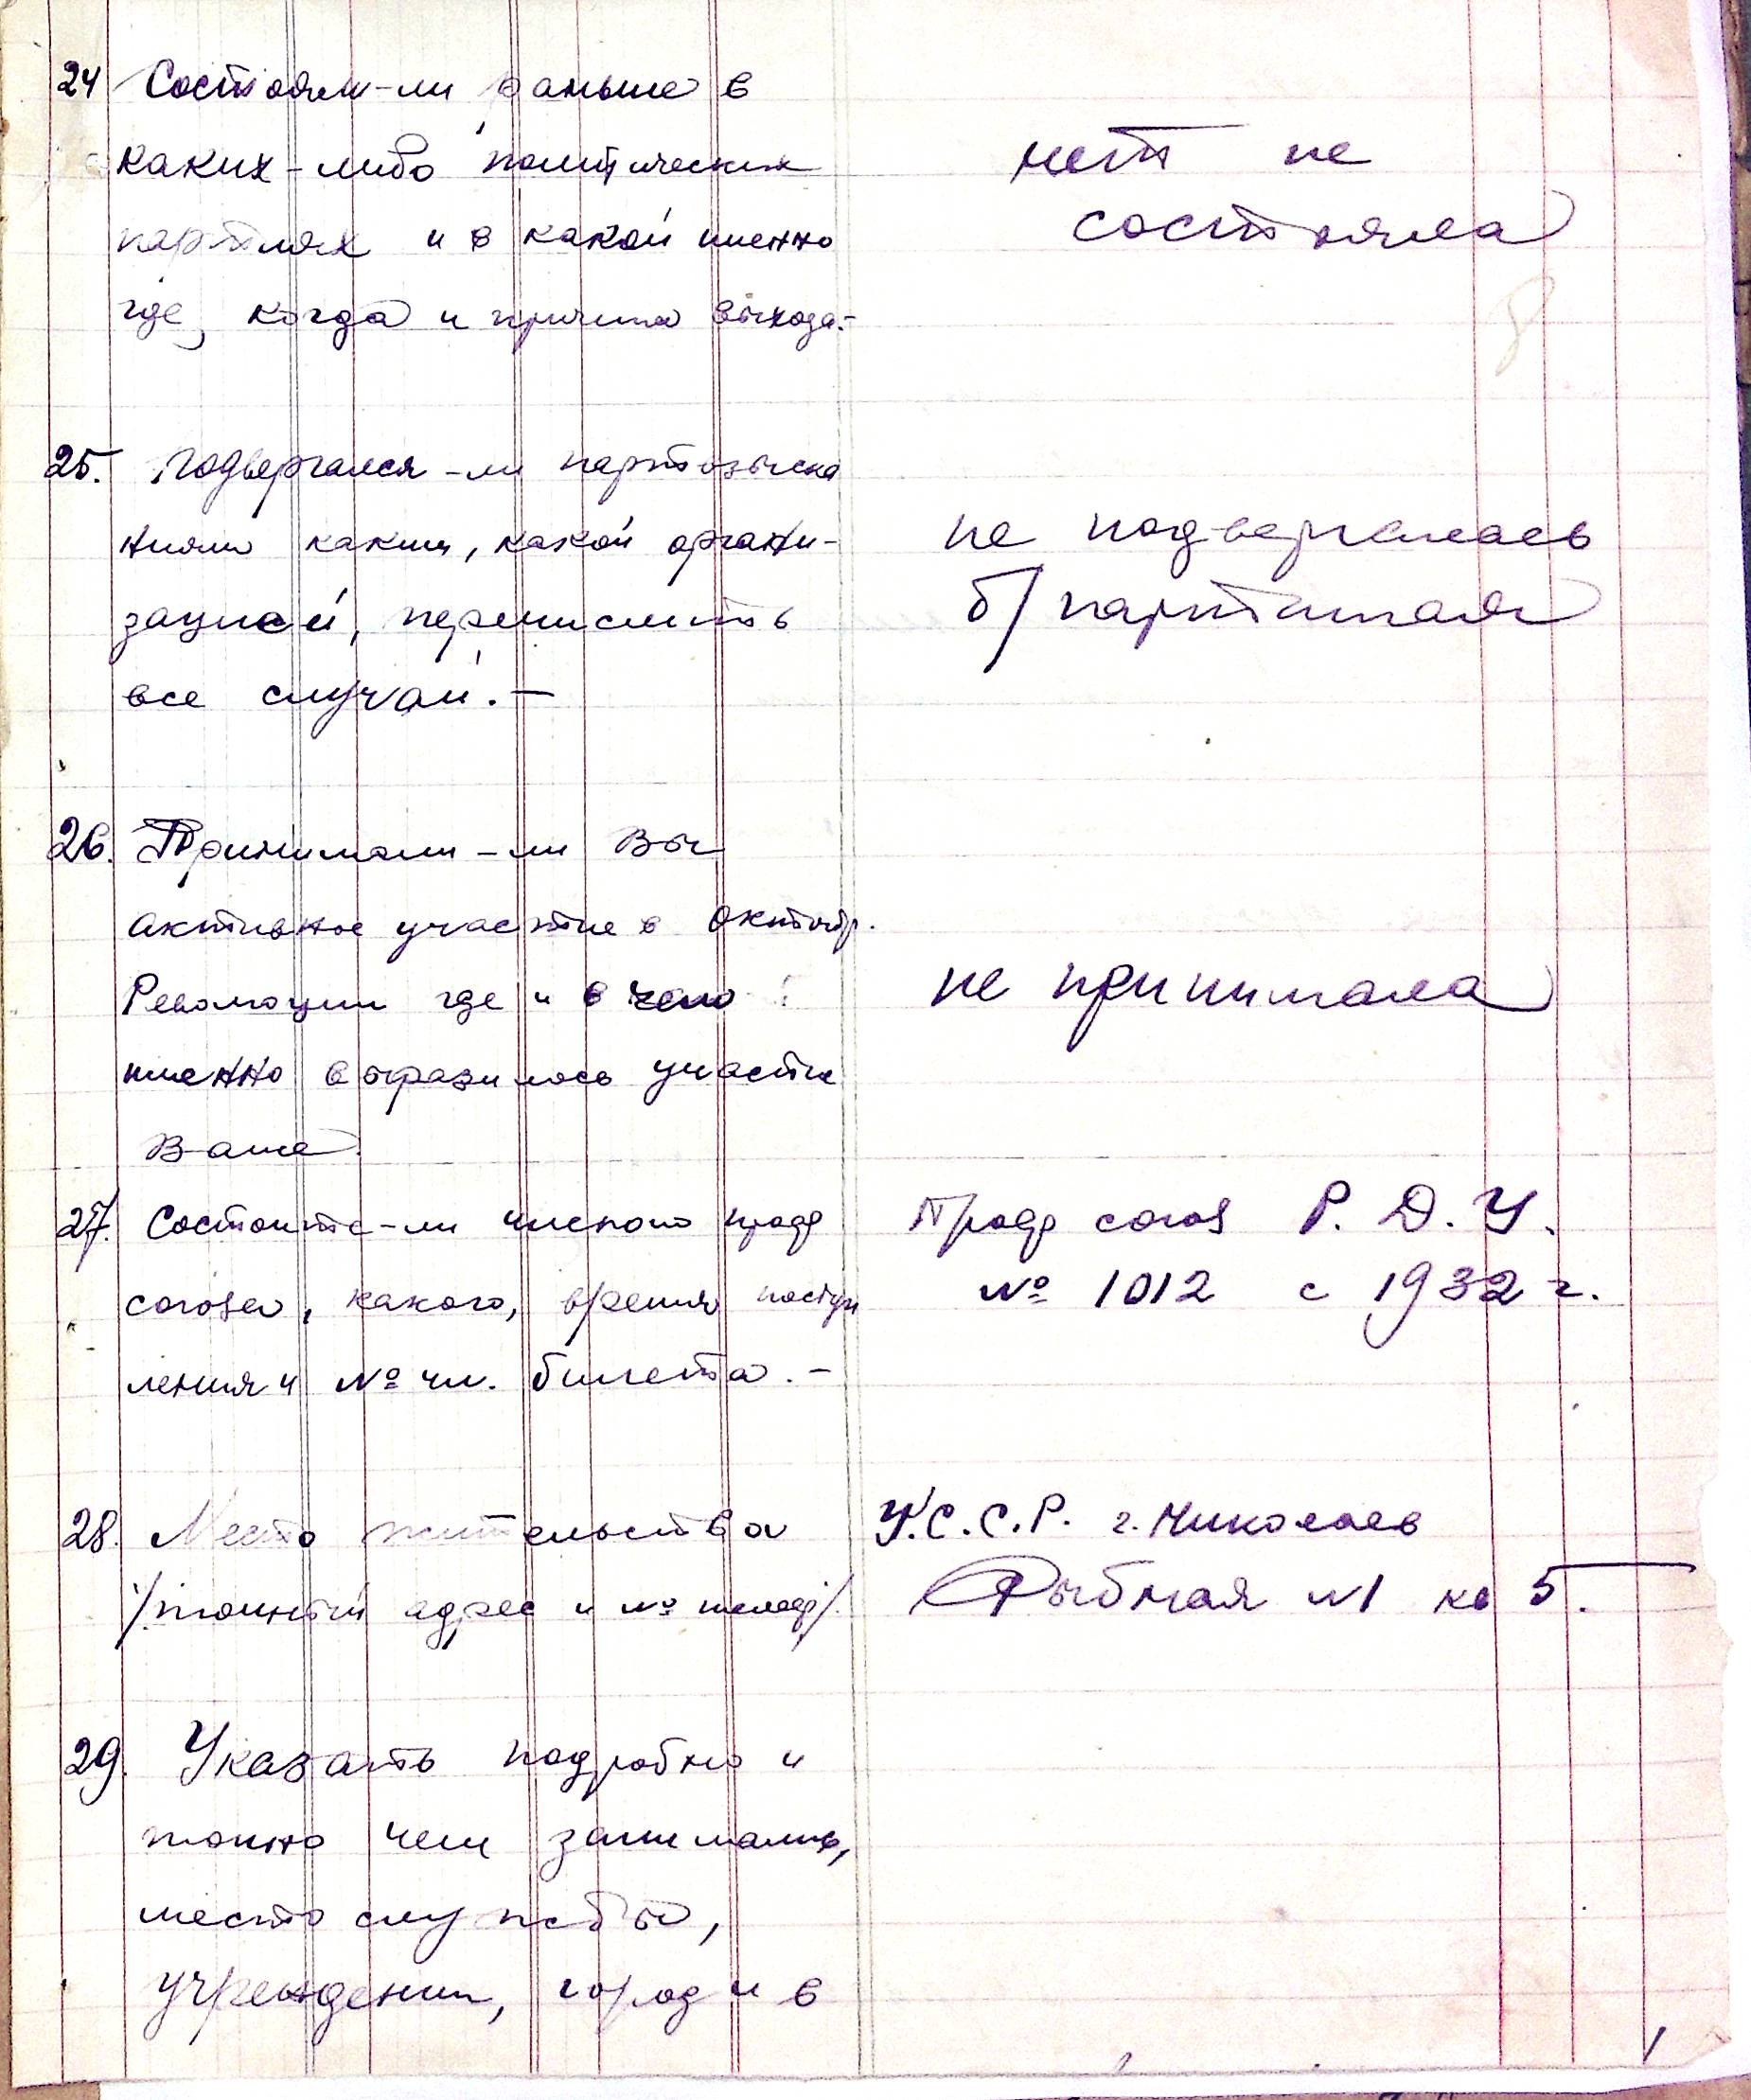 24 Состояли-ли раньше в
каких-либо политических
партиях и в какой именно
где, когда и причина выхода.-
нет не
состояла
25. Подвергался-ли партвзыска
ниям каким, какой органи-
зацией, перечислить
все случаи.-
не подвергалась
б/партийная
26. Принимали-ли Вы
активное участие в Октябр.
Революции где и в чем
именно выразилось участие
Ваше.
не принимала
27. Состоите-ли членом проф
союза, какого, время поступ
ления и № чл. билета.-
Проф союз Р. Д. У.
№ 1012 с 1932 г.
28. Место жительства
/точный адрес и № телеф/.
У.С.С.Р. г. Николаев
Рыбная №1 кв 5.
29. Указать подробно и
точно чем занимались,
место службы,
учреждении, город и в